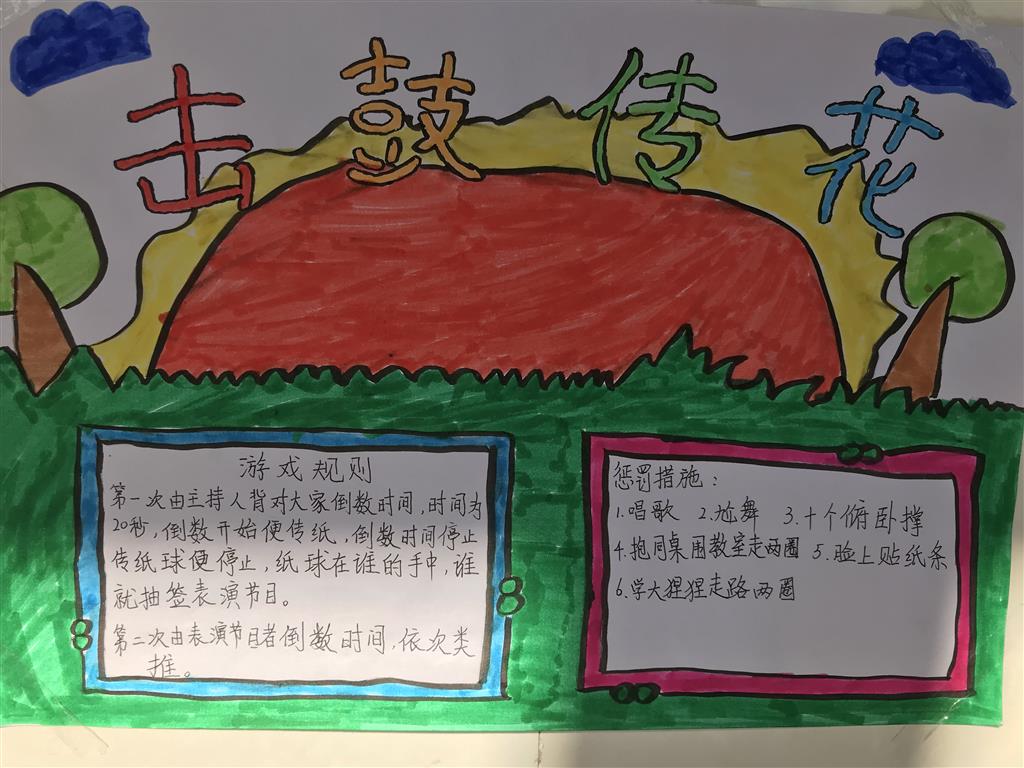 击鼓传花
游戏规则
第一次由主持人背对大家倒数时间，时间为
20秒，倒数开始便传纸，倒数时间停止
传纸球便停止，纸球在谁的手中，谁
就抽签表演节目。
第二次由表演节目者倒数时间，依次类
推。
惩罚措施：
1.唱歌 2.尬舞 3.十个俯卧撑
4.抱同桌围教室走两圈 5.脸上贴纸条
6.学大猩猩走路两圈